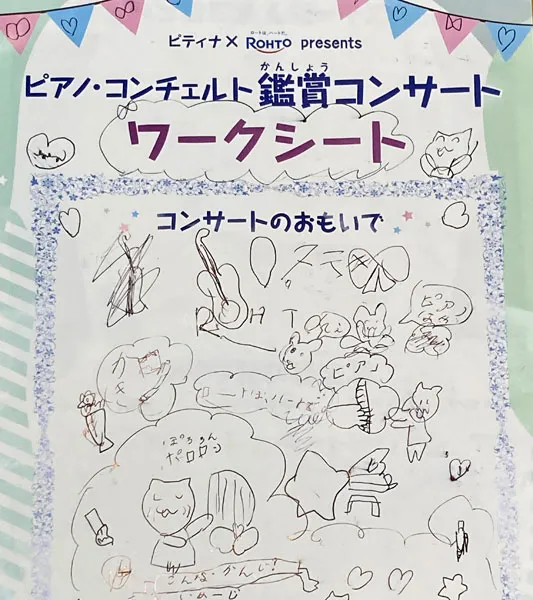 ピティナ× ロートは、ハートだ。 ROHTO presents
かんしょう
ピアノ・コンチェルト鑑賞コンサート
ワークシート
コンサートのおもいで
R H T
ピアノ
ぽろろん
ポロロン
こんな・かんじ!
いめーじ